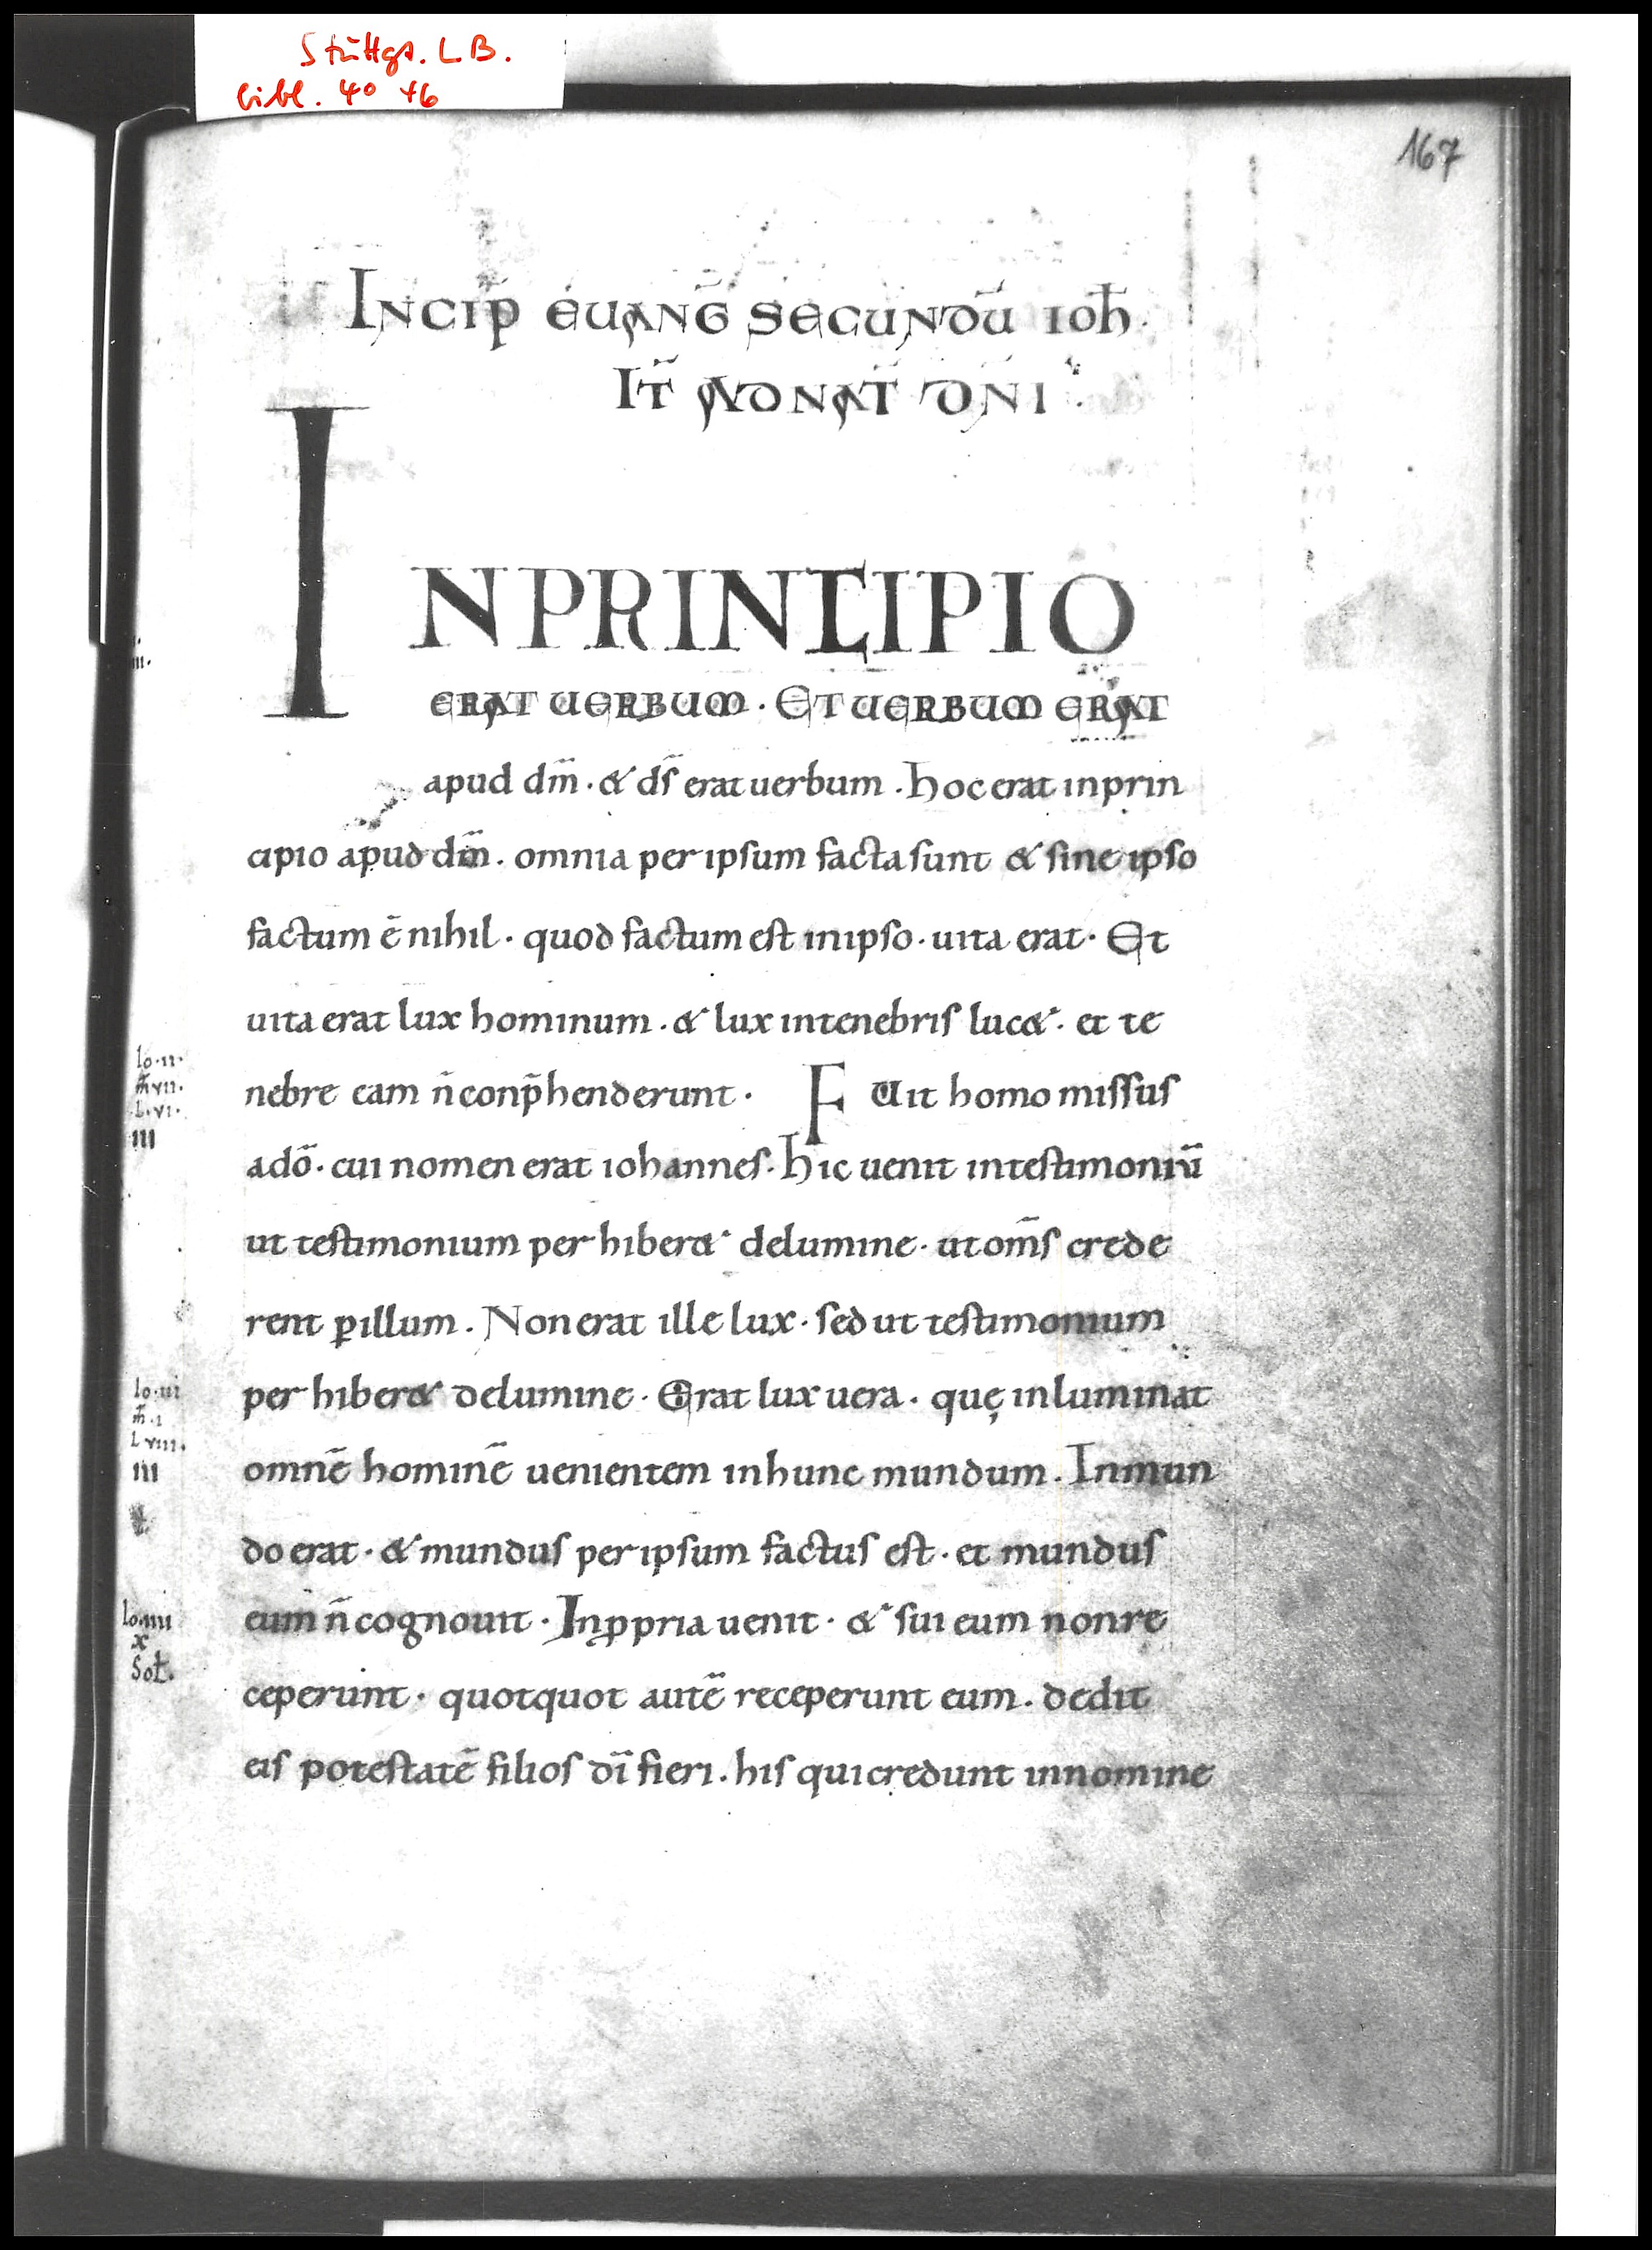 Stuttgt. L B.
bibl. 4° 46
167
INCIP̄ EUANḠ SECUNDŪ IOH̄.
IT̄ AD NAT̄ DN̄I.
INPRINCIPIO
ERAT UERBUM · ET UERBUM ERAT
apud dm̄ · & ds̄ erat uerbum . hoc erat inprin
cipio apud dm̄ . omnia per ipsum facta sunt & sine ipso
factum ē nihil · quod factum est inipso · uita erat · Et
uita erat lux hominum . & lux intenebris luc& · et te
nebre eam n̄ conp̄henderunt . FUit homo missus
adō · cui nomen erat iohannes . hic uenit intestimoniū
ut testimonium per hiber& delumine · ut om̄s crede
rent ꝑillum . Non erat ille lux · sed ut testimonium
per hiber& delumine · Erat lux uera . quę inluminat
omnē hominē uenientem inhunc mundum . Inmun
do erat · & mundus per ipsum factus est · et mundus
eum n̄ cognouit · Inꝓpria uenit · & sui eum nonre
ceperunt · quotquot autē receperunt eum . dedit
eis potestatē filios dī fieri . his qui credunt innomine
III.
Io·II·
M̄ VII.
L·VI·
III
Io·III
M̄·I
L VIII.
III
Io·IIII
X
Sol̄.